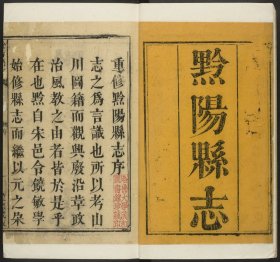 黔陽縣志
重修黔陽縣志序
志之為言識也所以考山
川圖籍而觀興廢沿革政
治風教之由者皆於是乎
在也黔自宋邑令饒敏學
始修縣志而繼以元之杲